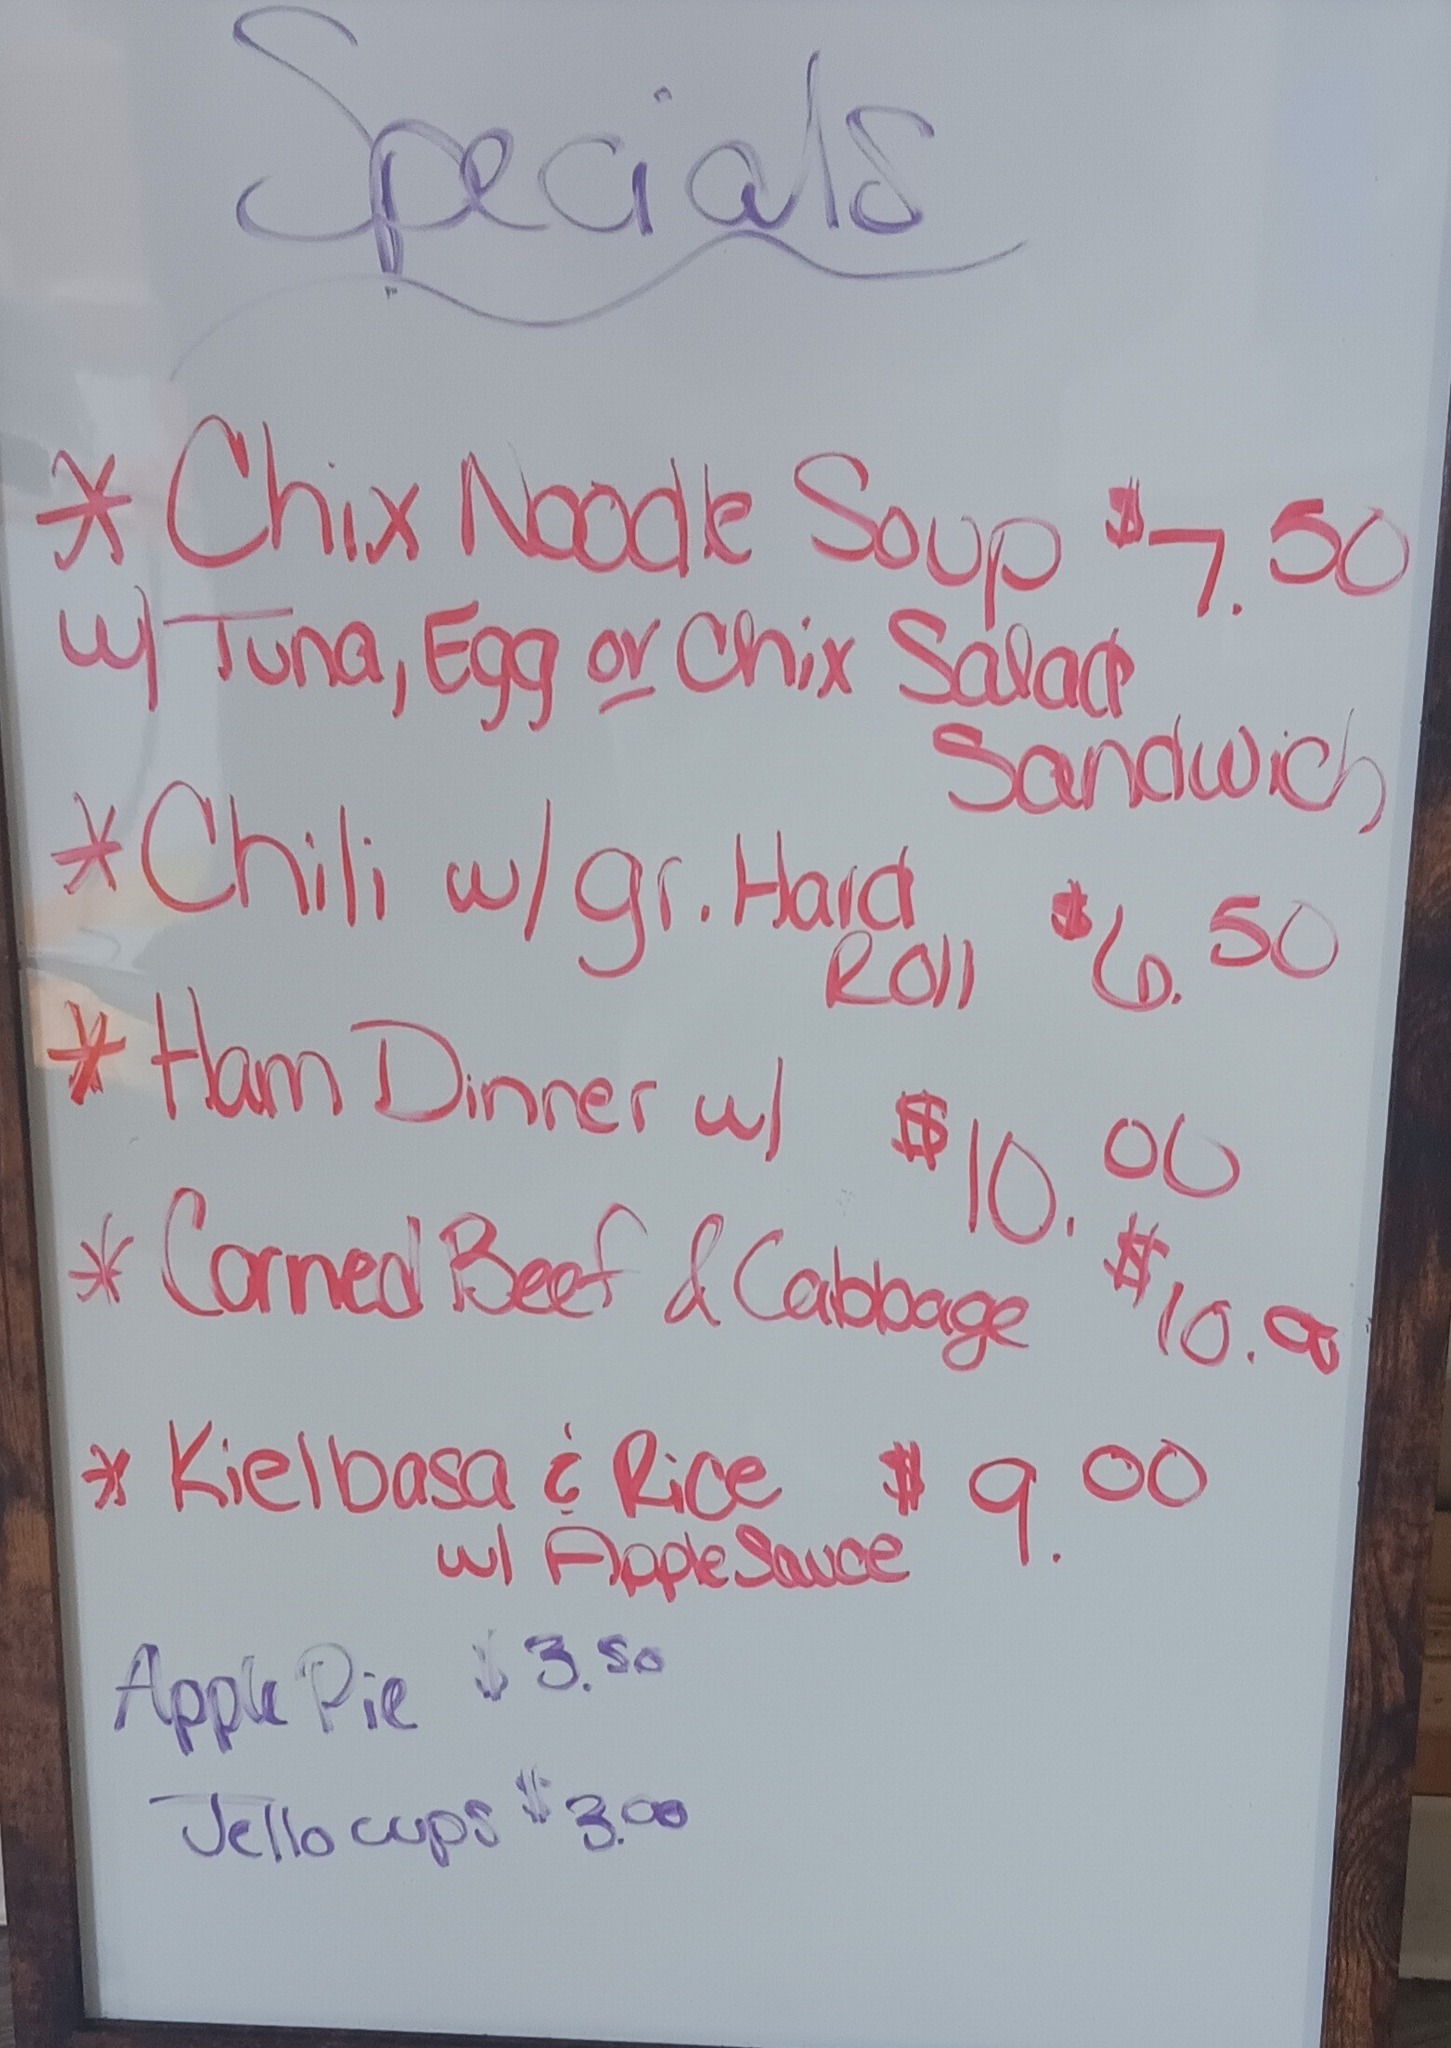 Specials
* Chix Noodle Soup $7.50
w/ Tuna, Egg or Chix Salad
Sandwich
* Chili w/ gr. Hard
Roll $6.50
* Ham Dinner w/ $10.00
* Corned Beef & Cabbage $10.00
* Kielbasa & Rice $9.00
w/ AppleSauce
Apple Pie $3.50
Jello cups $3.00